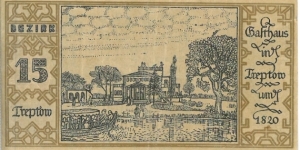 BEZIRK
15
Treptow
Gasthaus
in
Treptow
um
1820